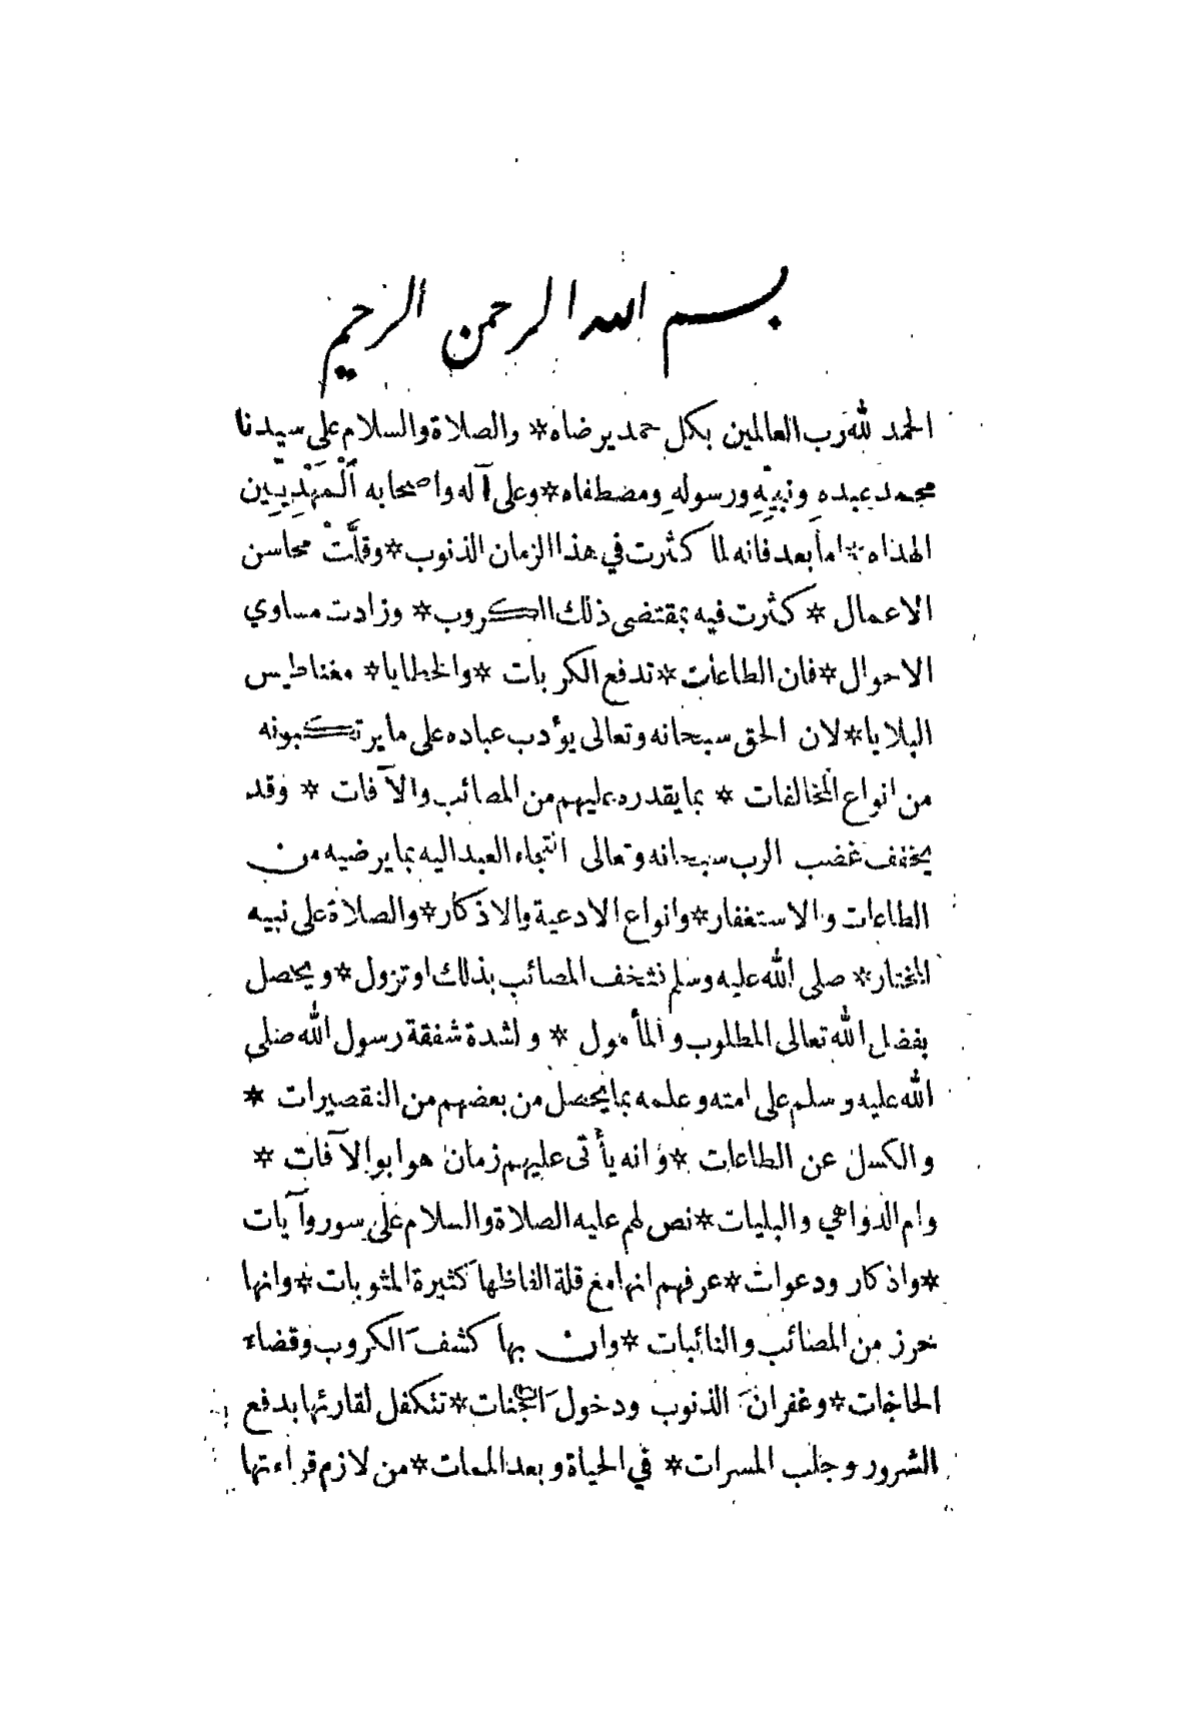 بسم الله الرحمن الرحيم
الحمد لله رب العالمين بكل حمد يرضاه * والصلاة والسلام على سيدنا
محمد عبدهِ ونبيّهِ ورسولهِ ومصطفاه * وعلى آله واصحابه اَلْمَهْدِيّين
الهداه * اما بعد فانه لما كثرت في هذا الزمان الذنوب * وقلَّتْ محاسن
الاعمال * كثرت فيه بمقتضى ذلك الكروب * وزادت مساوي
الاحوال * فان الطاعات * تدفع الكربات * والخطايا * مغناطيس
البلايا * لان الحق سبحانه وتعالى يؤدب عباده على ما يرتكبونه
من انواع المخالفات * بما يقدره عليهم من المصائب والآفات * وقد
يخفف غضب الرب سبحانه وتعالى التجاء العبد اليه بما يرضيه من
الطاعات والاستغفار * وانواع الادعية والاذكار * والصلاة على نبيه
المختار * صلى الله عليه وسلم فتخف المصائب بذلك او تزول * ويحصل
بفضل الله تعالى المطلوب والمأمول * ولشدة شفقة رسول الله صلى
الله عليه وسلم على امته وعلمه بما يحصل من بعضهم من التقصيرات *
والكسل عن الطاعات * وانه يأتى عليهم زمان هو ابو الآفات *
وام الدواهي والبليات * نص لهم عليه الصلاة والسلام على سور وآيات
* واذكار ودعوات * عرفهم انها مع قلة الفاظها كثيرة المثوبات * وانها
حرز من المصائب والنائبات * وان بها كشف الكروب وقضاء
الحاجات * وغفران الذنوب ودخول الجنات * تتكفل لقارئها بدفع
الشرور وجلب المسرات * في الحياة وبعد الممات * من لازم قراءتها